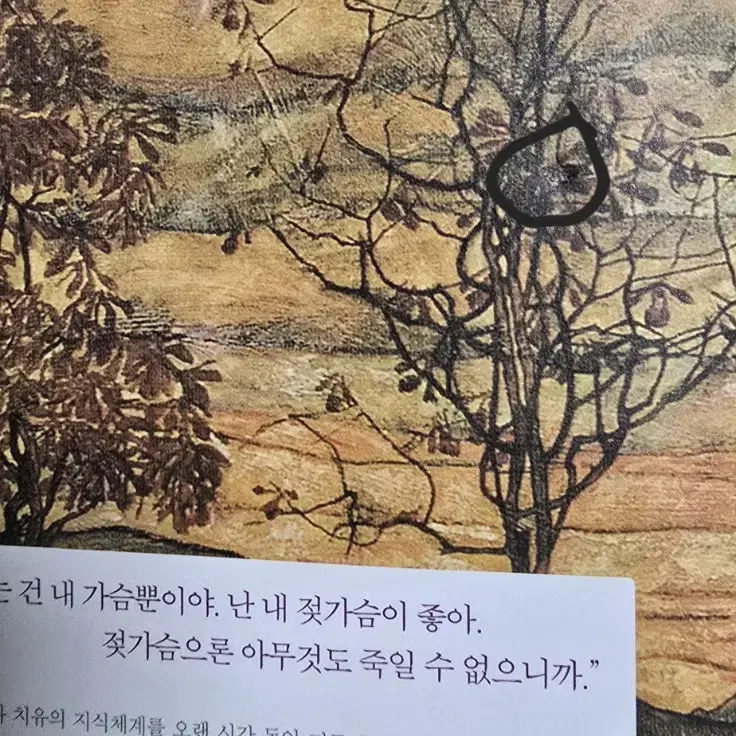 건 내 가슴뿐이야. 난 내 젖가슴이 좋아.
젖가슴으론 아무것도 죽일 수 없으니까.”
치유의 지식체계를 오랜 시간